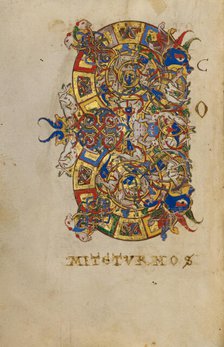 C
O
MITGTVRNOS